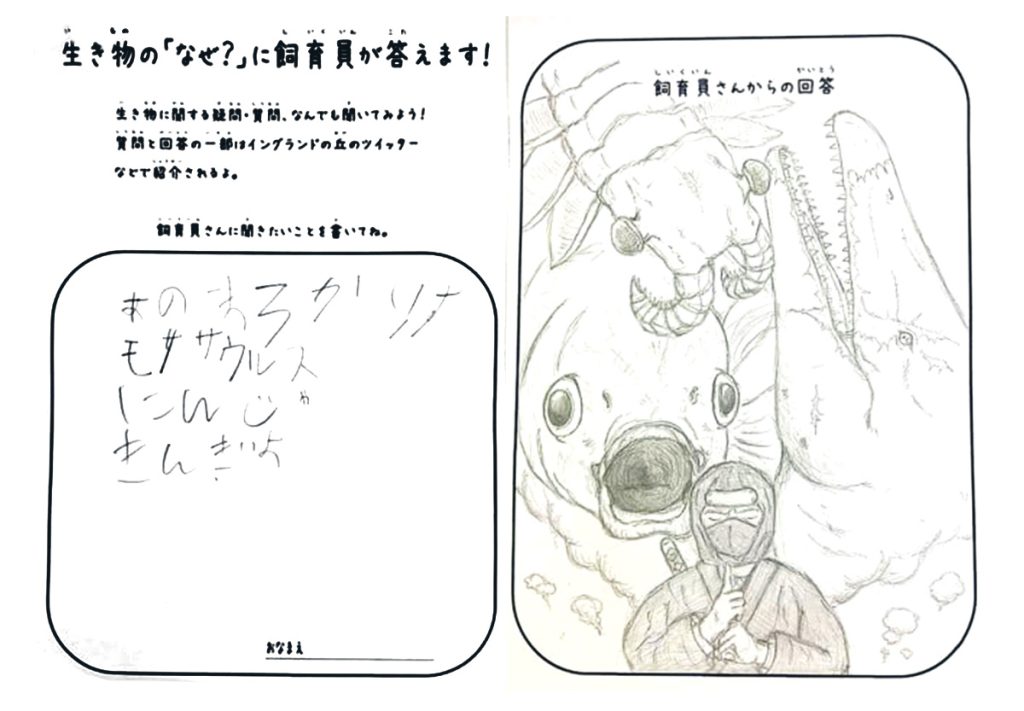 い もの しいくいん こた
生き物の「なぜ?」に飼育員が答えます!
生き物に関する疑問・質問、なんでも聞いてみよう!
質問と回答の一部はイングランドの丘のツイッター
などで紹介されるよ。
飼育員さんに聞きたいことを書いてね。
あのまろカリナ
モササウルス
にんじゃ
きんぎょ
おなまえ
しいくいん かいとう
飼育員さんからの回答